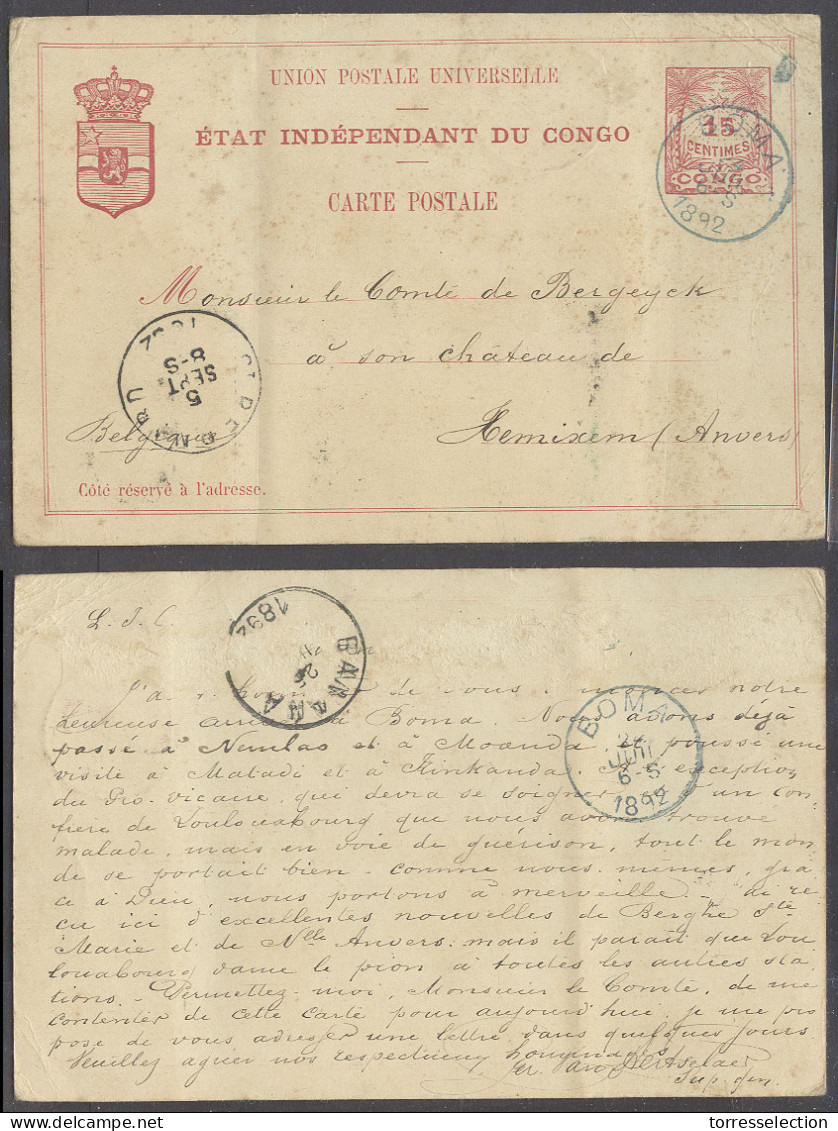 UNION POSTALE UNIVERSELLE
ÉTAT INDÉPENDANT DU CONGO
CARTE POSTALE
15
CENTIMES
CONGO
BOMA
6-S
1892
Monsieur le Comte de Bergeyck
à son château de
Hemixem (Anvers)
Belgique
5
SEPT
8-S
Côté réservé à l'adresse.
L. J. C.
BANANA
26
1892
BOMA
JUIL
6-S
1892
J'ai l'honneur de vous annoncer notre
heureuse arrivée à Boma. Nous avons déjà
passé à Nemlao et à Moanda, poussé une
visite à Matadi et à Kinkanda. A l'exception
du Pro-vicaire, qui devra se soigner, d'un con
frère de Loulouabourg que nous avons trouvé
malade, mais en voie de guérison, tout le mon
de se portait bien - comme nous-mêmes, grâ
ce à Dieu, nous portons à merveille - J'ai re
çu ici d'excellentes nouvelles de Berghe Ste
Marie et de Nlle Anvers: mais il parait que Lou
louabourg dame le pion à toutes les autres sta
tions. - Permettez-moi, Monsieur le Comte, de me
contenter de cette carte pour aujourd'hui; je me pro
pose de vous adresser une lettre dans quelques jours.
Veuillez agréer nos respectueux hommages
Van Aertselaer
Sup. gén.
torresselection
Delcampe.net